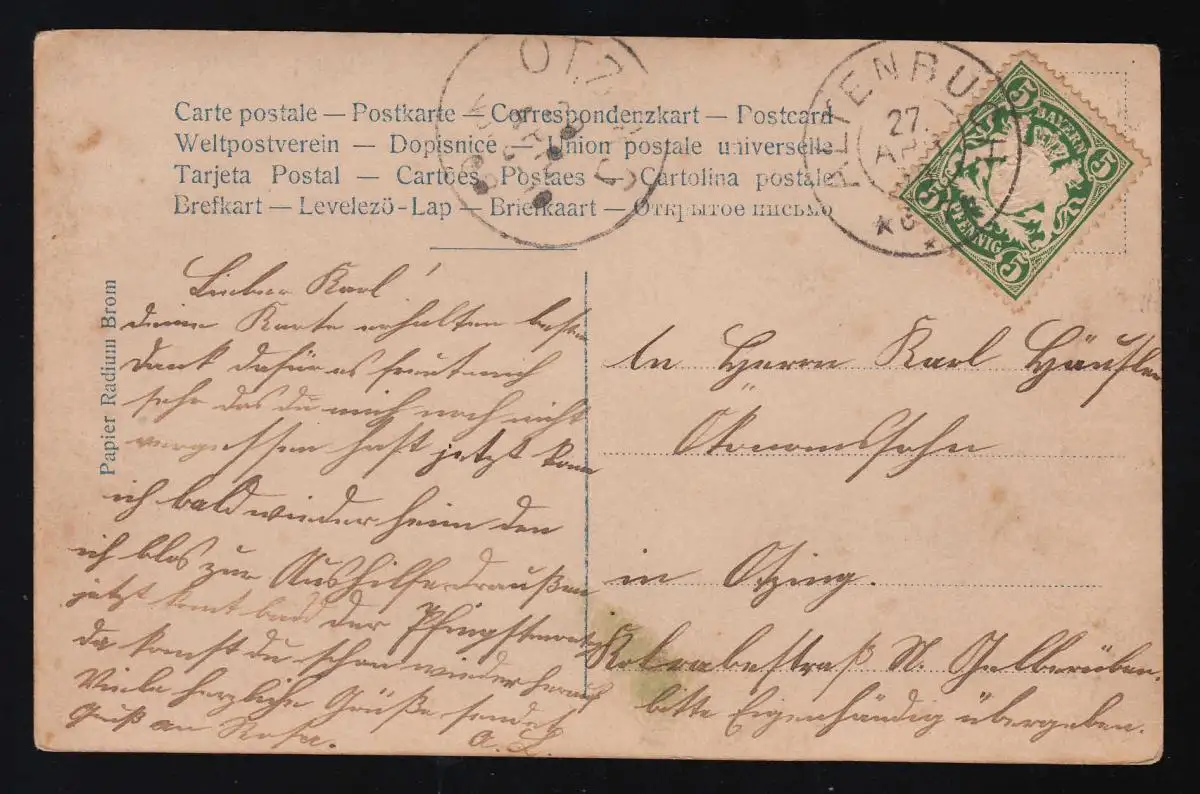 Carte postale — Postkarte — Correspondenzkart — Postcard
Weltpostverein — Dopisnice — Union postale universelle
Tarjeta Postal — Cartões Postaes — Cartolina postale
Brefkart — Levelező-Lap — Briefkaart — Открытое письмо
Papier Radium Brom
OTZ
27.
AP
5 BAYERN 5
5 PFENNIG 5
Lieber Karl!
deine Karte erhalten besten
Dank dafür es freut mich
sehr das du mich noch nicht
vergessen hast jetzt kom
ich bald wieder heim den
ich blos zur Aushilfe draußen
jetzt komt bald der Pfingst
da komst du schon wieder herauf
Viele herzliche Grüße sendet
Gruß an Rosa. A. L.
An Herrn Karl Häusler
Ökonomssohn
in Otzing.
Kolrabestraß N. Gelberüben.
bitte Eigenhändig übergeben.